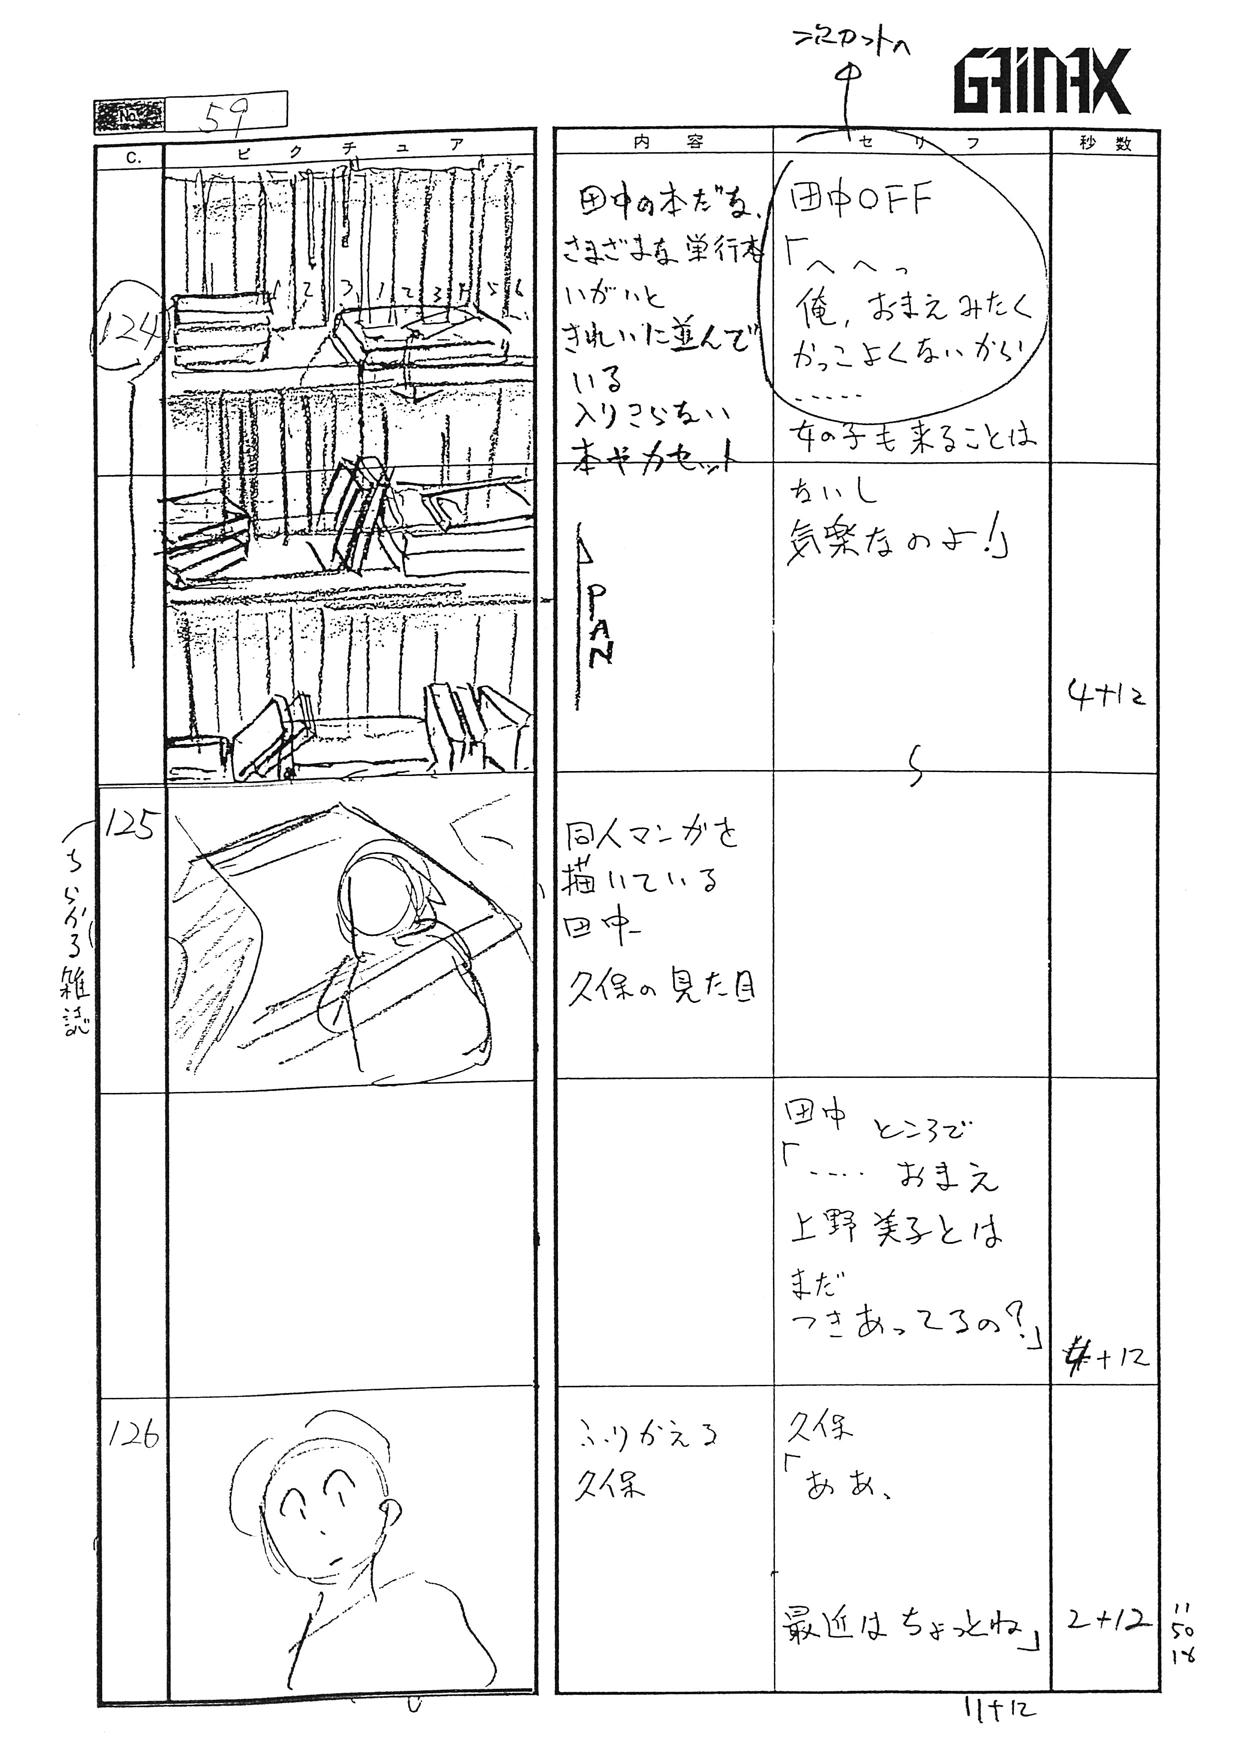 次カットへ
GAINAX
No. 59
C. ピクチュア 内容 セリフ 秒数
124
1 2 3 1 2 3 4 5 6
田中の本だな、
さまざまな単行本
いがいと
きれいに並んで
いる
入りきらない
本やカセット
PAN
田中OFF
「へへっ
俺、おまえみたく
かっこよくないから
‥‥‥
女の子も来ることは
ないし
気楽なのよ!」
4+12
125
ちらかる雑誌
同人マンガを
描いている
田中
久保の見た目
田中 ところで
「‥‥ おまえ
上野美子とは
まだ
つきあってるの?」
4+12
126
ふりかえる
久保
久保
「ああ、
最近はちょっとね」
2+12
11
50
18
11+12